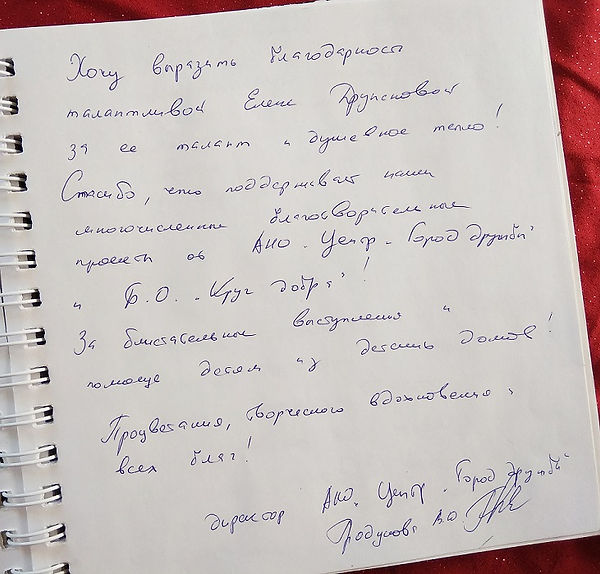 Хочу выразить благодарность
талантливой Елене
за ее талант и душевное тепло!
Спасибо, что поддерживает наши
многочисленные благотворительные
проекты от АНО "Центр "Город дружбы"
и Б.О. "Круг добра"!
За блистательные выступления и
помощь детям из детских домов!
Процветания, творческого вдохновения,
всех благ!
директор АНО "Центр "Город дружбы"